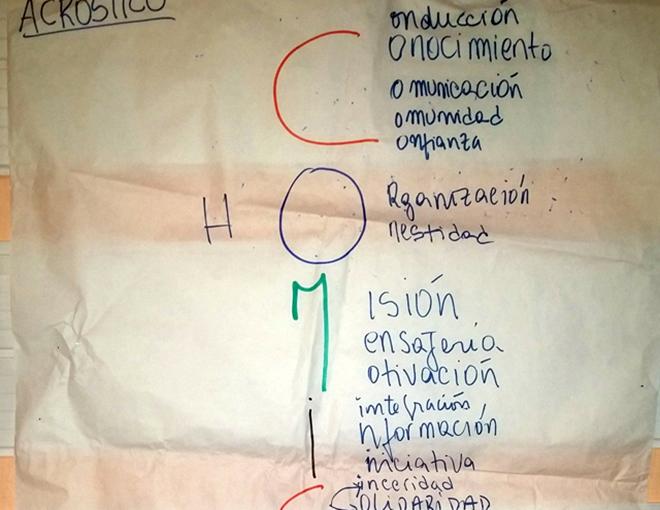 ACRÓSTICO
onducción
onocimiento
C
omunicación
omunidad
onfianza
H O rganización
nestidad
M isión
ensajería
otivación
integración
i nformación
iniciativa
inceridad
SOLIDARIDAD